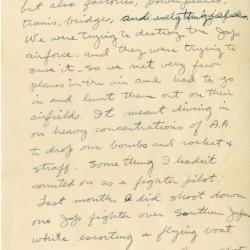 but also factories, power plants,
trains, bridges,
We were trying to destroy the Jap
airforce, and they were trying to
save it. So we met very few
planes in the air and had to go
in and hunt them out on their
airfields. It meant diving in
on heavy concentrations of A.A.
to drop our bombs and rockets &
straff. Something I hadn't
counted on as a fighter pilot.
Last month I did shoot down
one Jap fighter over Southern Jap
while escorting a flying boat